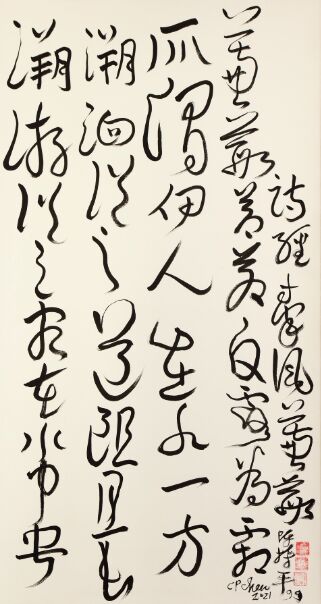 詩經秦風蒹葭
蒹葭蒼蒼白露為霜
所謂伊人在水一方
溯洄從之道阻且長
溯游從之宛在水中央
CP Chen
2021